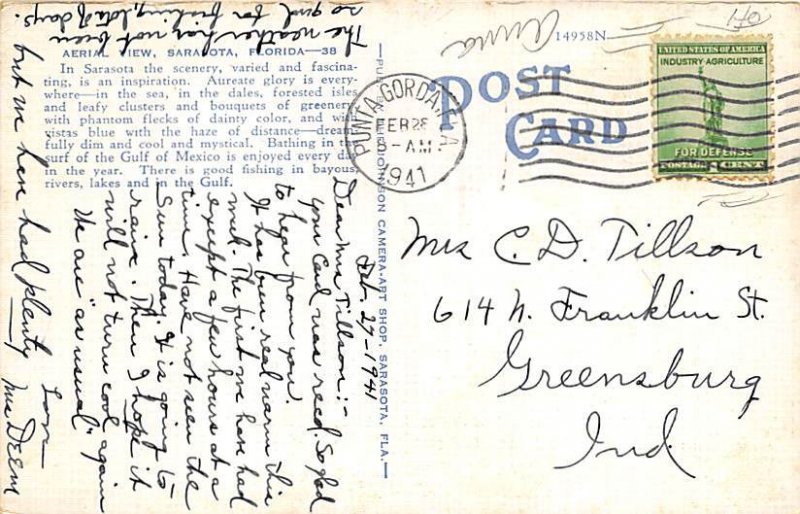 AERIAL VIEW, SARASOTA, FLORIDA—38
In Sarasota the scenery, varied and fascina-
ting, is an inspiration. Aureate glory is every-
where—in the sea, in the dales, forested isles
and leafy clusters and bouquets of greenery
with phantom flecks of dainty color, and
vistas blue with the haze of distance—dream-
fully dim and cool and mystical. Bathing in the
surf of the Gulf of Mexico is enjoyed every day
in the year. There is good fishing in bayous,
rivers, lakes and in the Gulf.
Feb. 27-1941
Dear Mrs Tillson:-
your Card was recd. So glad
to hear from you.
It has been real warm this
week. The first we have had
except a few hours at a
time. Have not seen the
Sun today. It is going to
rain. Then I hope it
will not turn cool again
We are "as usual"
Love
Mrs Deem
The weather has not been
so good for fishing, lots of days.
but we have had plenty
CAMERA-ART SHOP, SARASOTA, FLA.
Anna
14958N
POST
CARD
PUNTA GORDA, FLA
FEB 28
8-AM
1941
UNITED STATES OF AMERICA
INDUSTRY AGRICULTURE
FOR DEFENSE
POSTAGE 1 CENT
Mrs C. D. Tillson
614 N. Franklin St.
Greensburg
Ind.